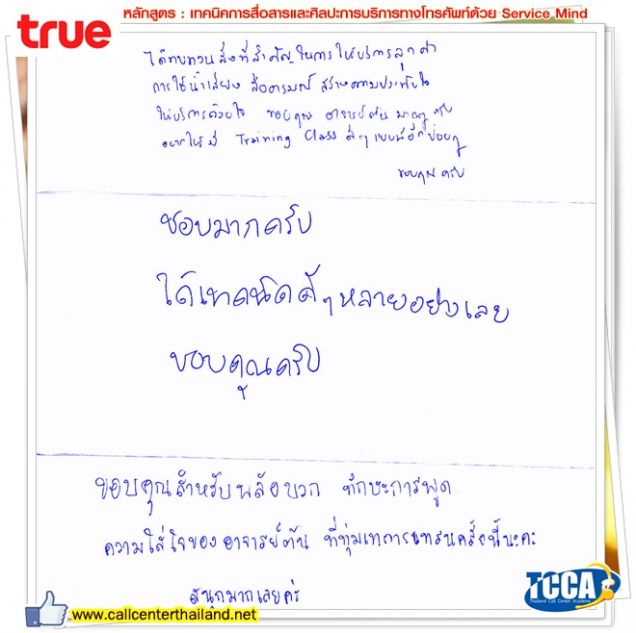 true
หลักสูตร : เทคนิคการสื่อสารและศิลปะการบริการทางโทรศัพท์ด้วย Service Mind
ได้ทบทวนสิ่งที่สำคัญในการให้บริการลูกค้า
การใช้น้ำเสียง สื่ออารมณ์ สร้างความประทับใจ
ให้บริการด้วยใจ ขอบคุณ อาจารย์ต้น มากๆ ครับ
อยากให้มี Training Class ดีๆ แบบนี้อีกบ่อยๆ
ขอบคุณ ครับ
ชอบมากครับ
ได้เทคนิคดีๆ หลายอย่างเลย
ขอบคุณครับ
ขอบคุณสำหรับพลังบวก ทักษะการพูด
ความใส่ใจของอาจารย์ต้น ที่ทุ่มเทการเทรนครั้งนี้นะคะ
สนุกมากเลยค่ะ
TCCA
Thailand Call Center Academy
www.callcenterthailand.net